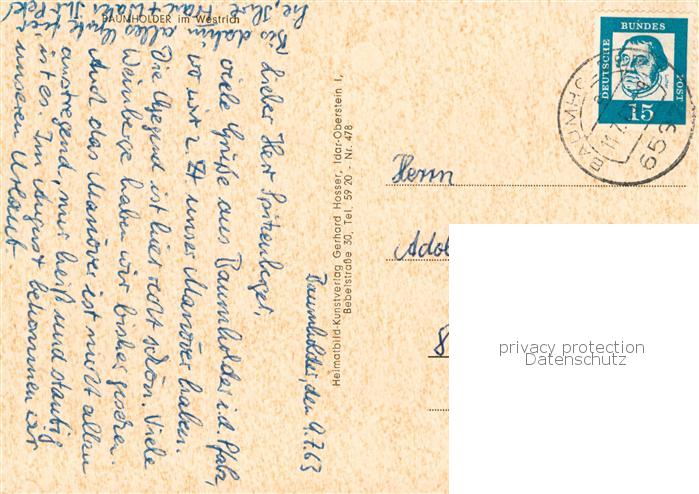 BAUMHOLDER im Westrich
Baumholder, den 9.7.63
Lieber Herr
viele Grüße aus Baumholder i.d. Pfalz,
wo wir z. Zt. unser Manöver haben.
Die Gegend ist hier recht schön. Viele
Weinberge haben wir bisher gesehen.
Auch das Manöver ist nicht allzu
anstrengend, nur heiß und staubig
ist es. Im August bekommen wir
unseren Urlaub.
Bis dahin alles Gute
Heimatbild-Kunstverlag Gerhard Hosser, Idar-Oberstein 1,
Bebelstraße 30, Tel. 59 20 - Nr. 478
DEUTSCHE BUNDES POST
15
BAUMHO
653
Herrn
Adol
8
privacy protection
Datenschutz